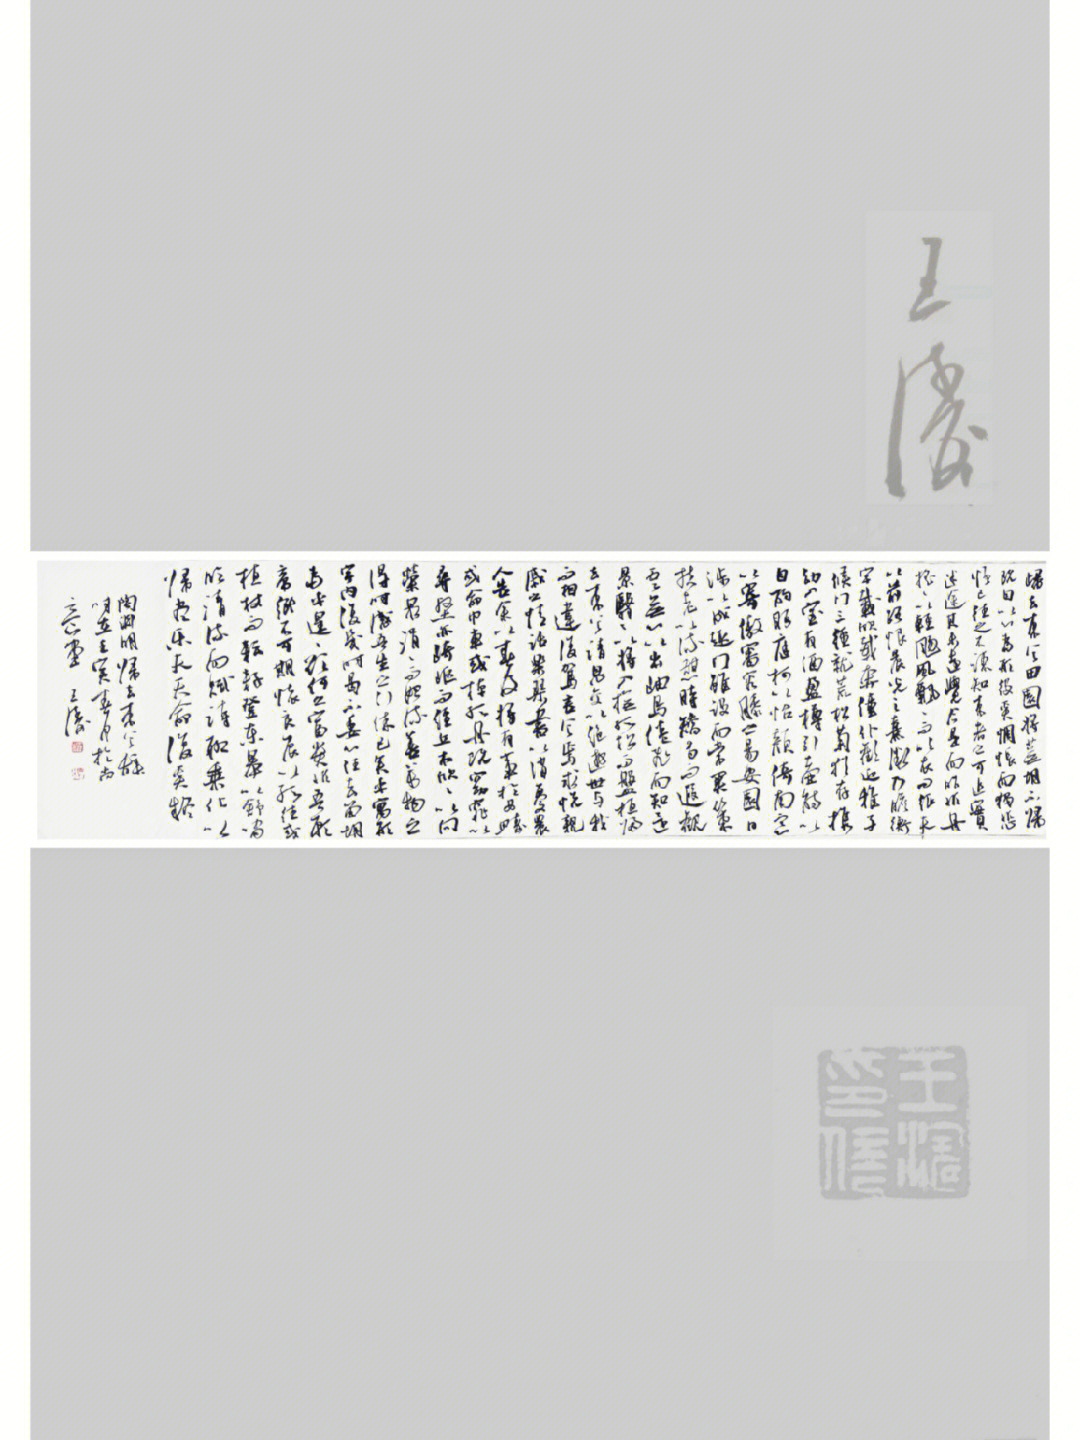 王濤
歸去來兮田園將蕪胡不歸
既自以心為形役奚惆悵而獨悲
悟已往之不諫知來者之可追實
迷途其未遠覺今是而昨非舟
搖搖以輕颺風飄飄而吹衣問征夫
以前路恨晨光之熹微乃瞻衡
宇載欣載奔僮僕歡迎稚子
候門三徑就荒松菊猶存攜
幼入室有酒盈樽引壺觴以
自酌眄庭柯以怡顏倚南窗
以寄傲審容膝之易安園日
涉以成趣門雖設而常關策
扶老以流憩時矯首而遐觀
雲無心以出岫鳥倦飛而知還
景翳翳以將入撫孤松而盤桓歸
去來兮請息交以絕遊世與我
而相違復駕言兮焉求悅親
戚之情話樂琴書以消憂農
人告余以春及將有事於西疇
或命巾車或棹孤舟既窈窕以
尋壑亦崎嶇而經丘木欣欣以向
榮泉涓涓而始流善萬物之
得時感吾生之行休已矣乎寓形
宇內復幾時曷不委心任去留胡
為乎遑遑欲何之富貴非吾願
帝鄉不可期懷良辰以孤往或
植杖而耘耔登東皋以舒嘯
臨清流而賦詩聊乘化以
歸盡樂夫天命復奚疑
陶淵明歸去來兮辭
時在壬寅春月於尚
意堂 王濤
王濤印信